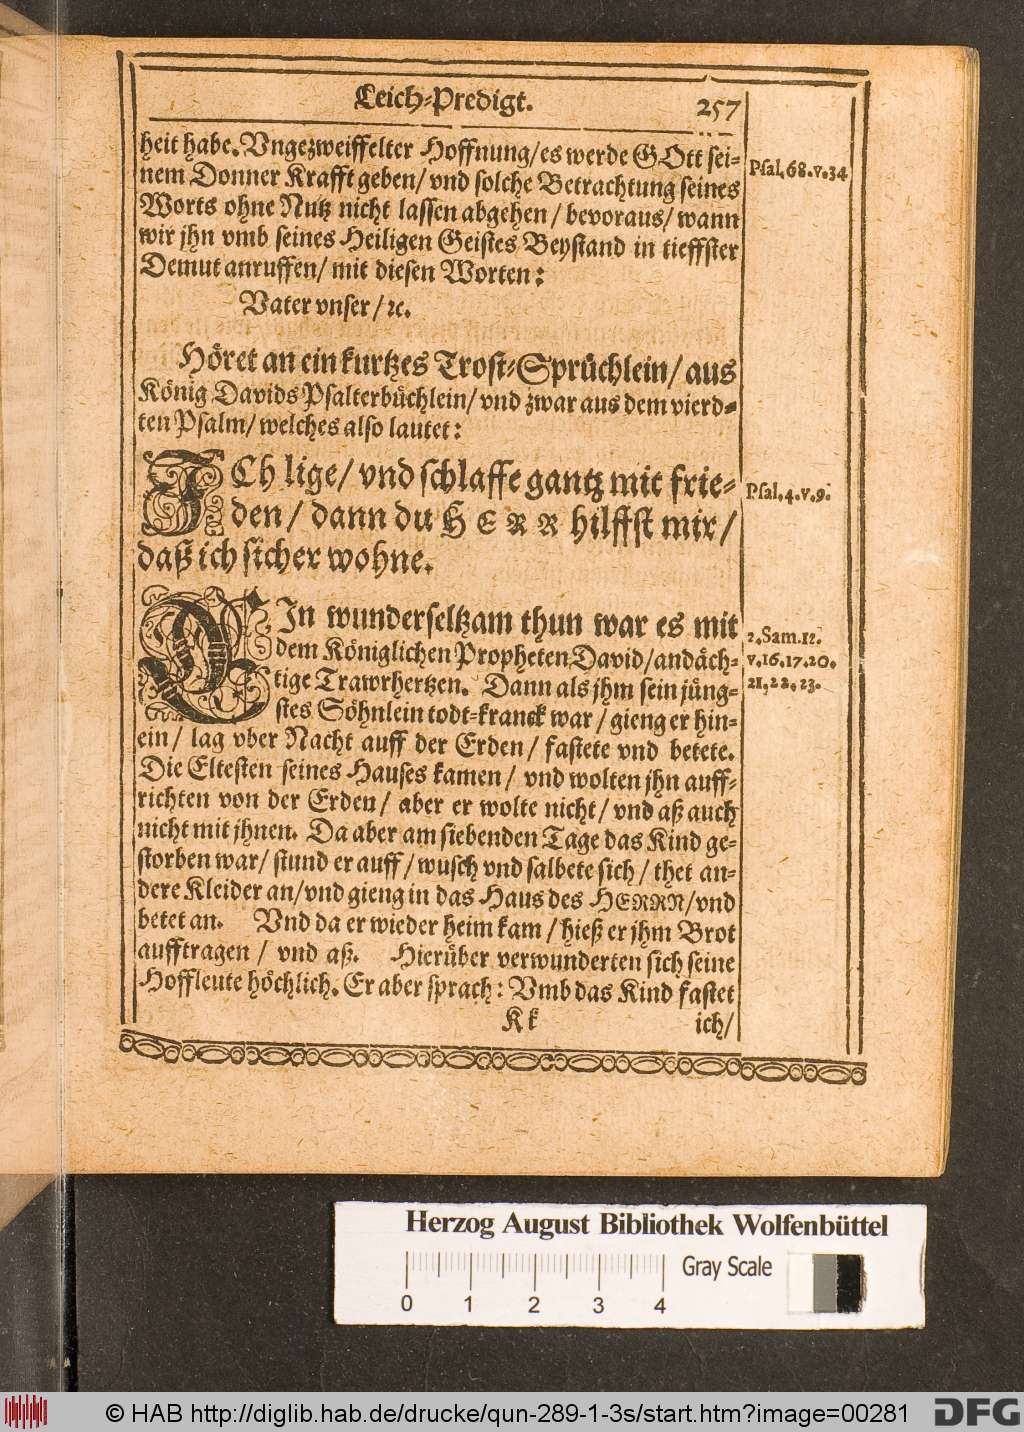 Leich-Predigt. 257
heit habe. Vngezweiffelter Hoffnung/ es werde GOtt sei-
nem Donner Krafft geben/ vnd solche Betrachtung seines
Worts ohne Nutz nicht lassen abgehen/ bevoraus/ wann
wir jhn vmb seines Heiligen Geistes Beystand in tieffster
Demut anruffen/ mit diesen Worten:
Vater vnser/ ꝛc.
Psal. 68. v. 34
Höret an ein kurtzes Trost-Sprüchlein/ aus
König Davids Psalterbüchlein/ vnd zwar aus dem vierd-
ten Psalm/ welches also lautet:
ICh lige/ vnd schlaffe gantz mit frie-
den/ dann du HERR hilffst mir/
daß ich sicher wohne.
Psal. 4. v. 9.
EIn wunderseltzam thun war es mit
dem Königlichen Propheten David/ andäch-
tige Trawrhertzen. Dann als jhm sein jüng-
stes Söhnlein todt-kranck war/ gieng er hin-
ein/ lag vber Nacht auff der Erden/ fastete vnd betete.
Die Eltesten seines Hauses kamen/ vnd wolten jhn auff-
richten von der Erden/ aber er wolte nicht/ vnd aß auch
nicht mit jhnen. Da aber am siebenden Tage das Kind ge-
storben war/ stund er auff/ wusch vnd salbete sich/ thet an-
dere Kleider an/ vnd gieng in das Haus des HERRN/ vnd
betet an. Vnd da er wieder heim kam/ hieß er jhm Brot
aufftragen/ vnd aß. Hierüber verwunderten sich seine
Hoffleute höchlich. Er aber sprach: Vmb das Kind fastet
2. Sam. 12.
v. 16. 17. 20.
21, 22. 23.
Kk ich/
Herzog August Bibliothek Wolfenbüttel
Gray Scale
0 1 2 3 4
© HAB http://diglib.hab.de/drucke/qun-289-1-3s/start.htm?image=00281
DFG